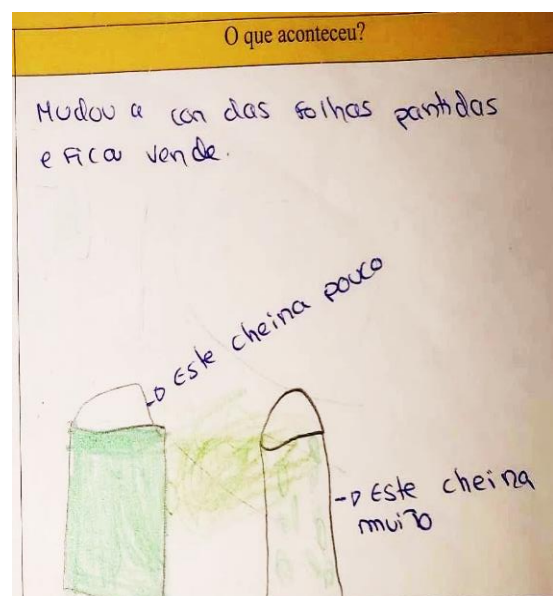 O que aconteceu?
Mudou a con das folhas pantidas
e fica vende.
Este cheina pouco
Este cheina
muito